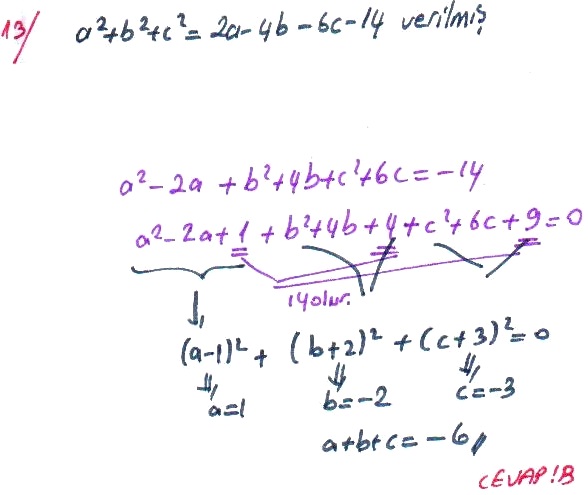 13/ a²+b²+c²=2a-4b-6c-14 verilmiş
a²-2a+b²+4b+c²+6c=-14
a²-2a+1+b²+4b+4+c²+6c+9=0
14 olur.
(a-1)²+(b+2)²+(c+3)²=0
a=1 b=-2 c=-3
a+b+c=-6//
CEVAP!B